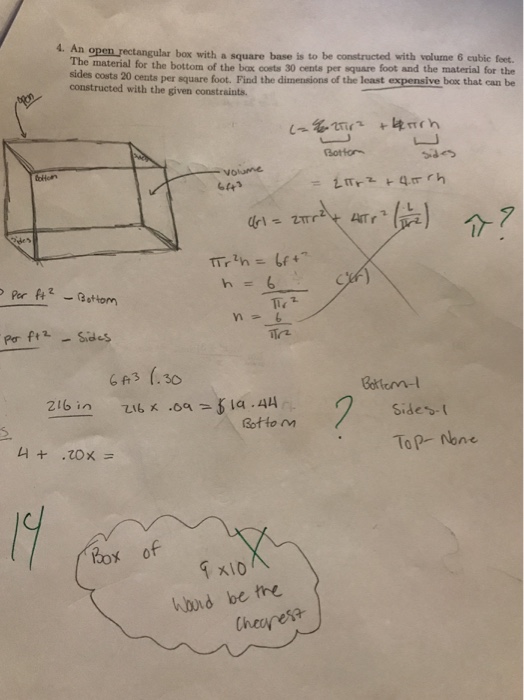 4. An open rectangular box with a square base is to be constructed with volume 6 cubic feet.
The material for the bottom of the box costs 30 cents per square foot and the material for the
sides costs 20 cents per square foot. Find the dimensions of the least expensive box that can be
constructed with the given constraints.
open
C = 2πr² + 4πrh
Bottom Sides
Bottom
Sides
volume
6 ft³
= 2πr² + 4πrh
C(r) = 2πr² + 4πr²
π?
πr²h = 6ft³
h = 6
πr²
C'(r)
h = 6
πr²
Per ft² - Bottom
Per ft² - Sides
6 ft3 (.30
216 in 216 x .09 = $19.44
Bottom
?
Bottom-1
Sides-1
Top- None
4 + .20x =
14
Box of
9 x10
Would be the
Cheapest